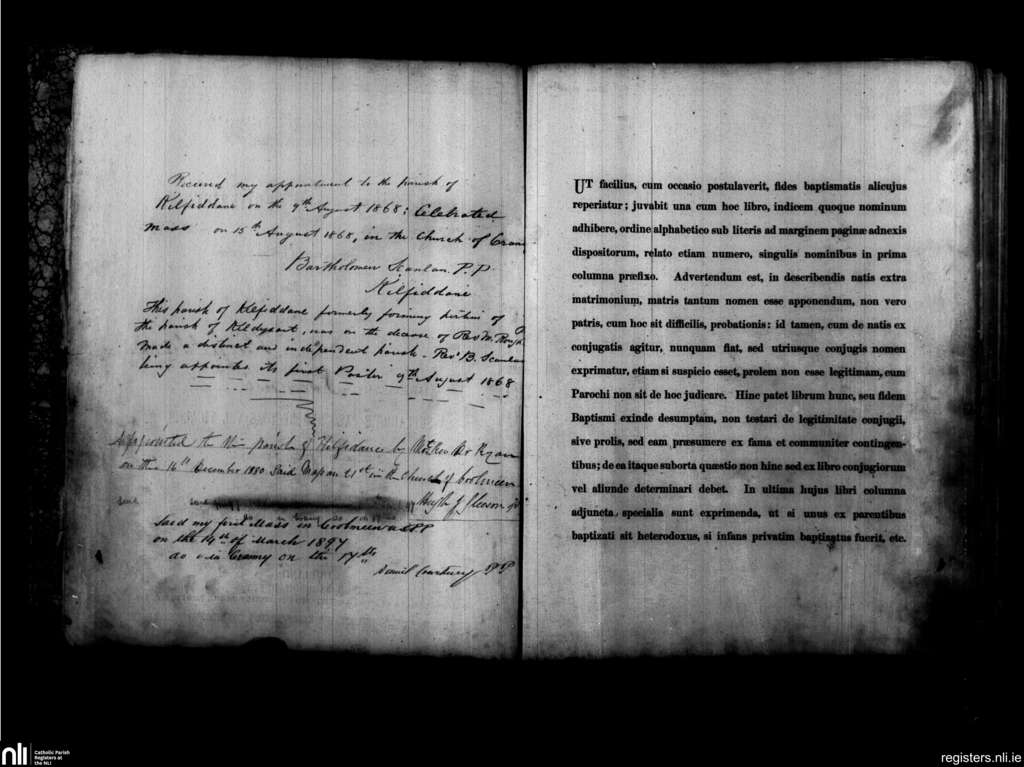 Received my appointment to the Parish of
Kilfiddane on the 9th August 1868; Celebrated
Mass on 15th August 1868, in the Church of Cran
Bartholomew Scanlan P.P.
Kilfiddane
This parish of Kilfiddane formerly forming portion of
the parish of Kildysart, was on the decease of Revd M.
made a distinct and independent parish - Revd B. Scanlan
being appointed its first Pastor 9th August 1868
Appointed to the parish of Kilfidane by Most Rev Dr Ryan
on the 16th December 1880 Said Mass on 21st in the Church of Coolmeen
Hugh J Gleeson
Said my first Mass in Coolmeen as PP
on the 14th of March 1897
do in Cranny on the 17th
Daniel Courtney P P
UT facilius, cum occasio postulaverit, fides baptismatis alicujus
reperiatur; juvabit una cum hoc libro, indicem quoque nominum
adhibere, ordine alphabetico sub literis ad marginem paginæ adnexis
dispositorum, relato etiam numero, singulis nominibus in prima
columna præfixo. Advertendum est, in describendis natis extra
matrimonium, matris tantum nomen esse apponendum, non vero
patris, cum hoc sit difficilis, probationis: id tamen, cum de natis ex
conjugatis agitur, nunquam fiat, sed utriusque conjugis nomen
exprimatur, etiam si suspicio esset, prolem non esse legitimam, cum
Parochi non sit de hoc judicare. Hinc patet librum hunc, seu fidem
Baptismi exinde desumptam, non testari de legitimitate conjugii,
sive prolis, sed eam præsumere ex fama et communiter contingen-
tibus; de ea itaque suborta quæstio non hinc sed ex libro conjugiorum
vel aliunde determinari debet. In ultima hujus libri columna
adjuncta specialia sunt exprimenda, ut si unus ex parentibus
baptizati sit heterodoxus, si infans privatim baptisatus fuerit, etc.
nli
Catholic Parish
Registers at
the NLI
registers.nli.ie